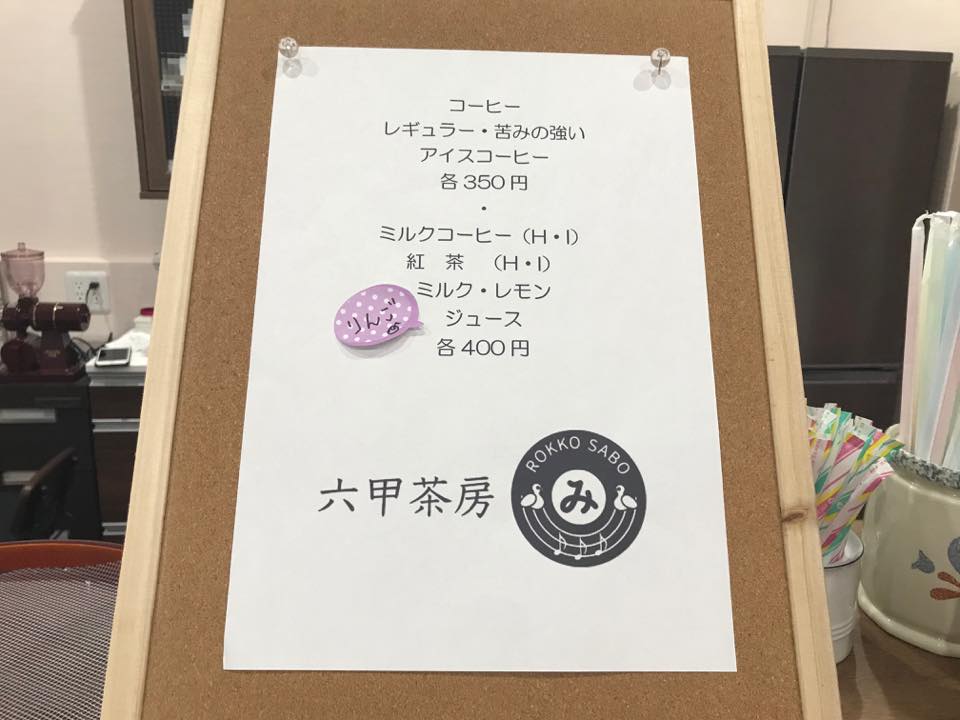 コーヒー
レギュラー・苦みの強い
アイスコーヒー
各350円
・
ミルクコーヒー（H・I）
紅　茶　（H・I）
ミルク・レモン
りんご
ジュース
各400円
六甲茶房
ROKKO SABO
み